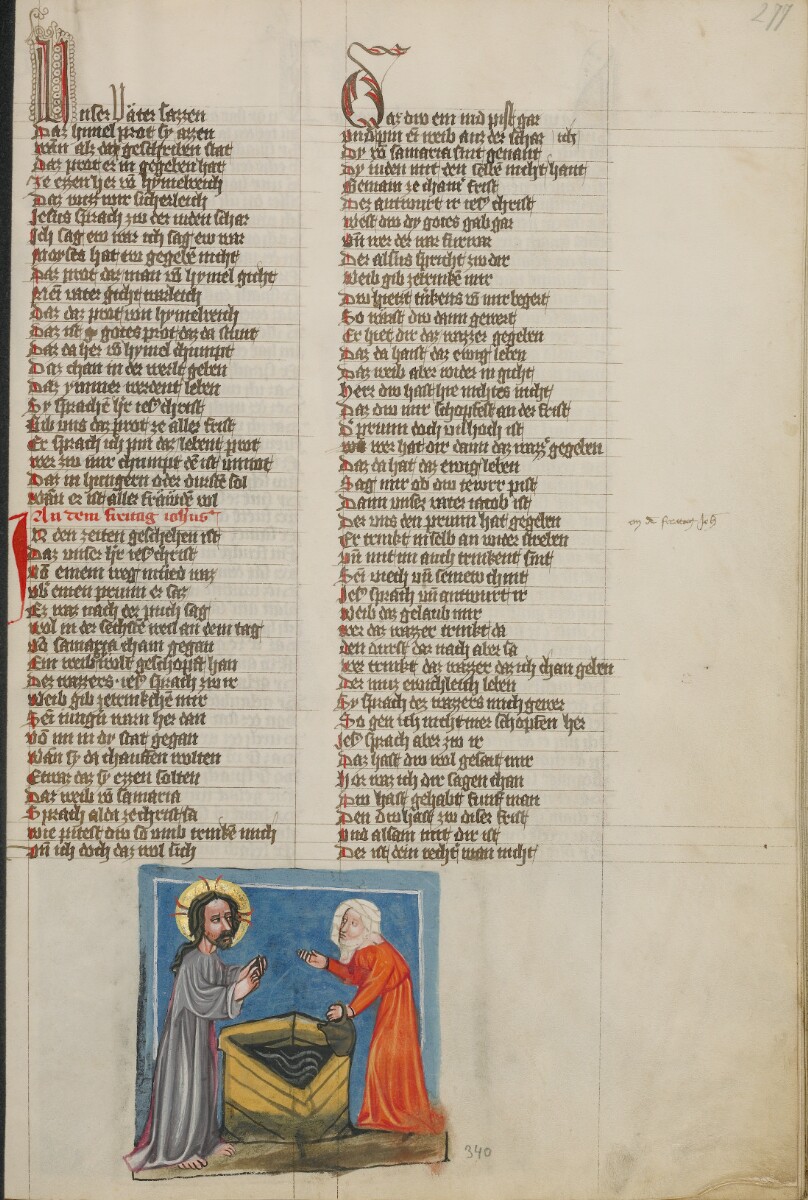 277
Unser Väter sazzen
Daz hymel prot sy azzen
wan alz daz geschriben stat
Daz prot er in gegeben hat
Ze ezzen her vō hymelreich
Daz wizz wir sicherleich
Jesus sprach zw der iuden schar
Ich sag ew war ich sag ew war
Moyses hat ew gegebē nicht
Daz prot daz man vō hymel gicht
Mein vater gicht
Daz daz prot von hymelreich
Daz ist gotes prot daz da
Daz da her vō hymel chumpt
Daz chan in der werlt geben
Daz ymmer werdent leben
Sy sprachē hr ies᾽ christ
Gib uns daz prot ze aller frist
Er sprach ich pin daz lebent prot
wer zw mir chumpt dē ist unnot
Daz in hungern oder dursten sol
Wan er ist aller frawdē vol
An dem freitag iohns
In den zeiten geschehen ist
Daz unser hr ies᾽ christ
Vō einem weg mued waz
ob einen prunn er saz
Ez waz nach der puch sag
Wol in der sechstē weil an dem tag
Vō samaria cham gegan
Ein weib wolt geschopft han
Dez wazzers ies᾽ sprach zw ir
Weib gib zetrinkchē mir
Sein iungn warn her dan
vō im in dy stat gegan
Wan sy da chauffen wolten
Etwaz daz sy ezzen solten
Daz weib vō samaria
Sprach alda ze christ sa
Wie pitest diw so umb trinkē mich
Nu ich doch daz wol sich
Daz diw ein iud pist gar
und pin ei weib auz der schar ich
Dy vō samaria sint genant
Dy iuden mit den selbē nicht hant
Gemain ze chainer frist
Der antwurt ir ies᾽ christ
West diw dy gotes gab gar
Vn wer der war furwar
Der alsus spricht zw dir
Weib gib zetrinkē mir
Diw hietst trinkens vō mir begert
So warst diw dann gewert
Er hiet dir daz wazzer gegeben
Daz da haist daz ewig leben
Daz weib aber wider in gicht
Herr diw hast hie nichtes nicht
Daz diw mit schopfest an der frist
Der prunn doch vil hoch ist
wer hat dir dann daz wazz᾽ gegeben
Daz da hat daz ewig leben
Sag mir ob diw tewrr pist
Dann unser vater iacob ist
Der uns den prunn hat gegeben
Er trinkt in selb an wider streben
Vn mit im auch trinkent sint
Sein viech vn seinew chint
Jes᾽ sprach vn antwurt ir
Weib daz gelaub mir
Wer daz wazzer trinkt da
den durst dar nach aber sa
Wer trinkt daz wazzer daz ich chan geben
Der muz ewichleich leben
Sy sprach dez wazzers mich gewer
So gen ich nicht mer schopfen her
Jes᾽ sprach aber zw ir
Daz hast diw wol gesait mir
Hor waz ich dir sagen chan
Diw hast gehabt funf man
Den diw hast zw diser frist
Und alsam mit dir ist
Der ist dein recht᾽ man nicht
340